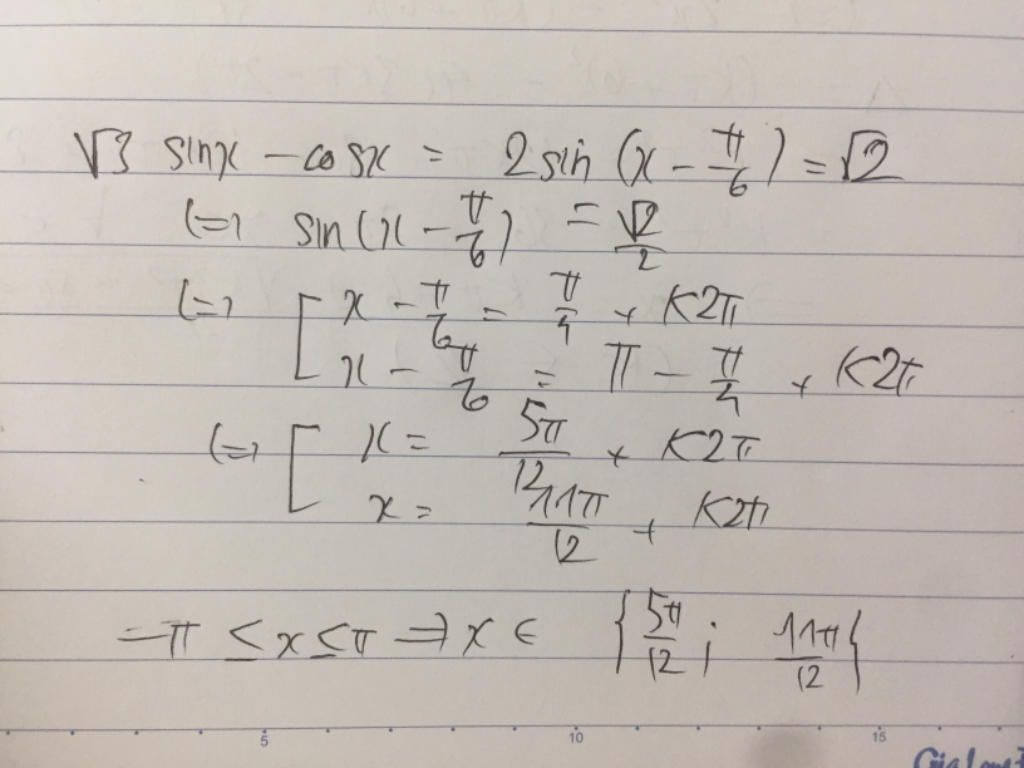 √3 sinx - cosx = 2sin (x - π/6) = √2
(=) sin(x - π/6) = √2/2
(=) [ x - π/6 = π/4 + K2π
x - π/6 = π - π/4 + K2π
(=) [ x = 5π/12 + K2π
x = 11π/12 + K2π
-π ≤ x ≤ π => x ∈ {5π/12 ; 11π/12}
5 10 15